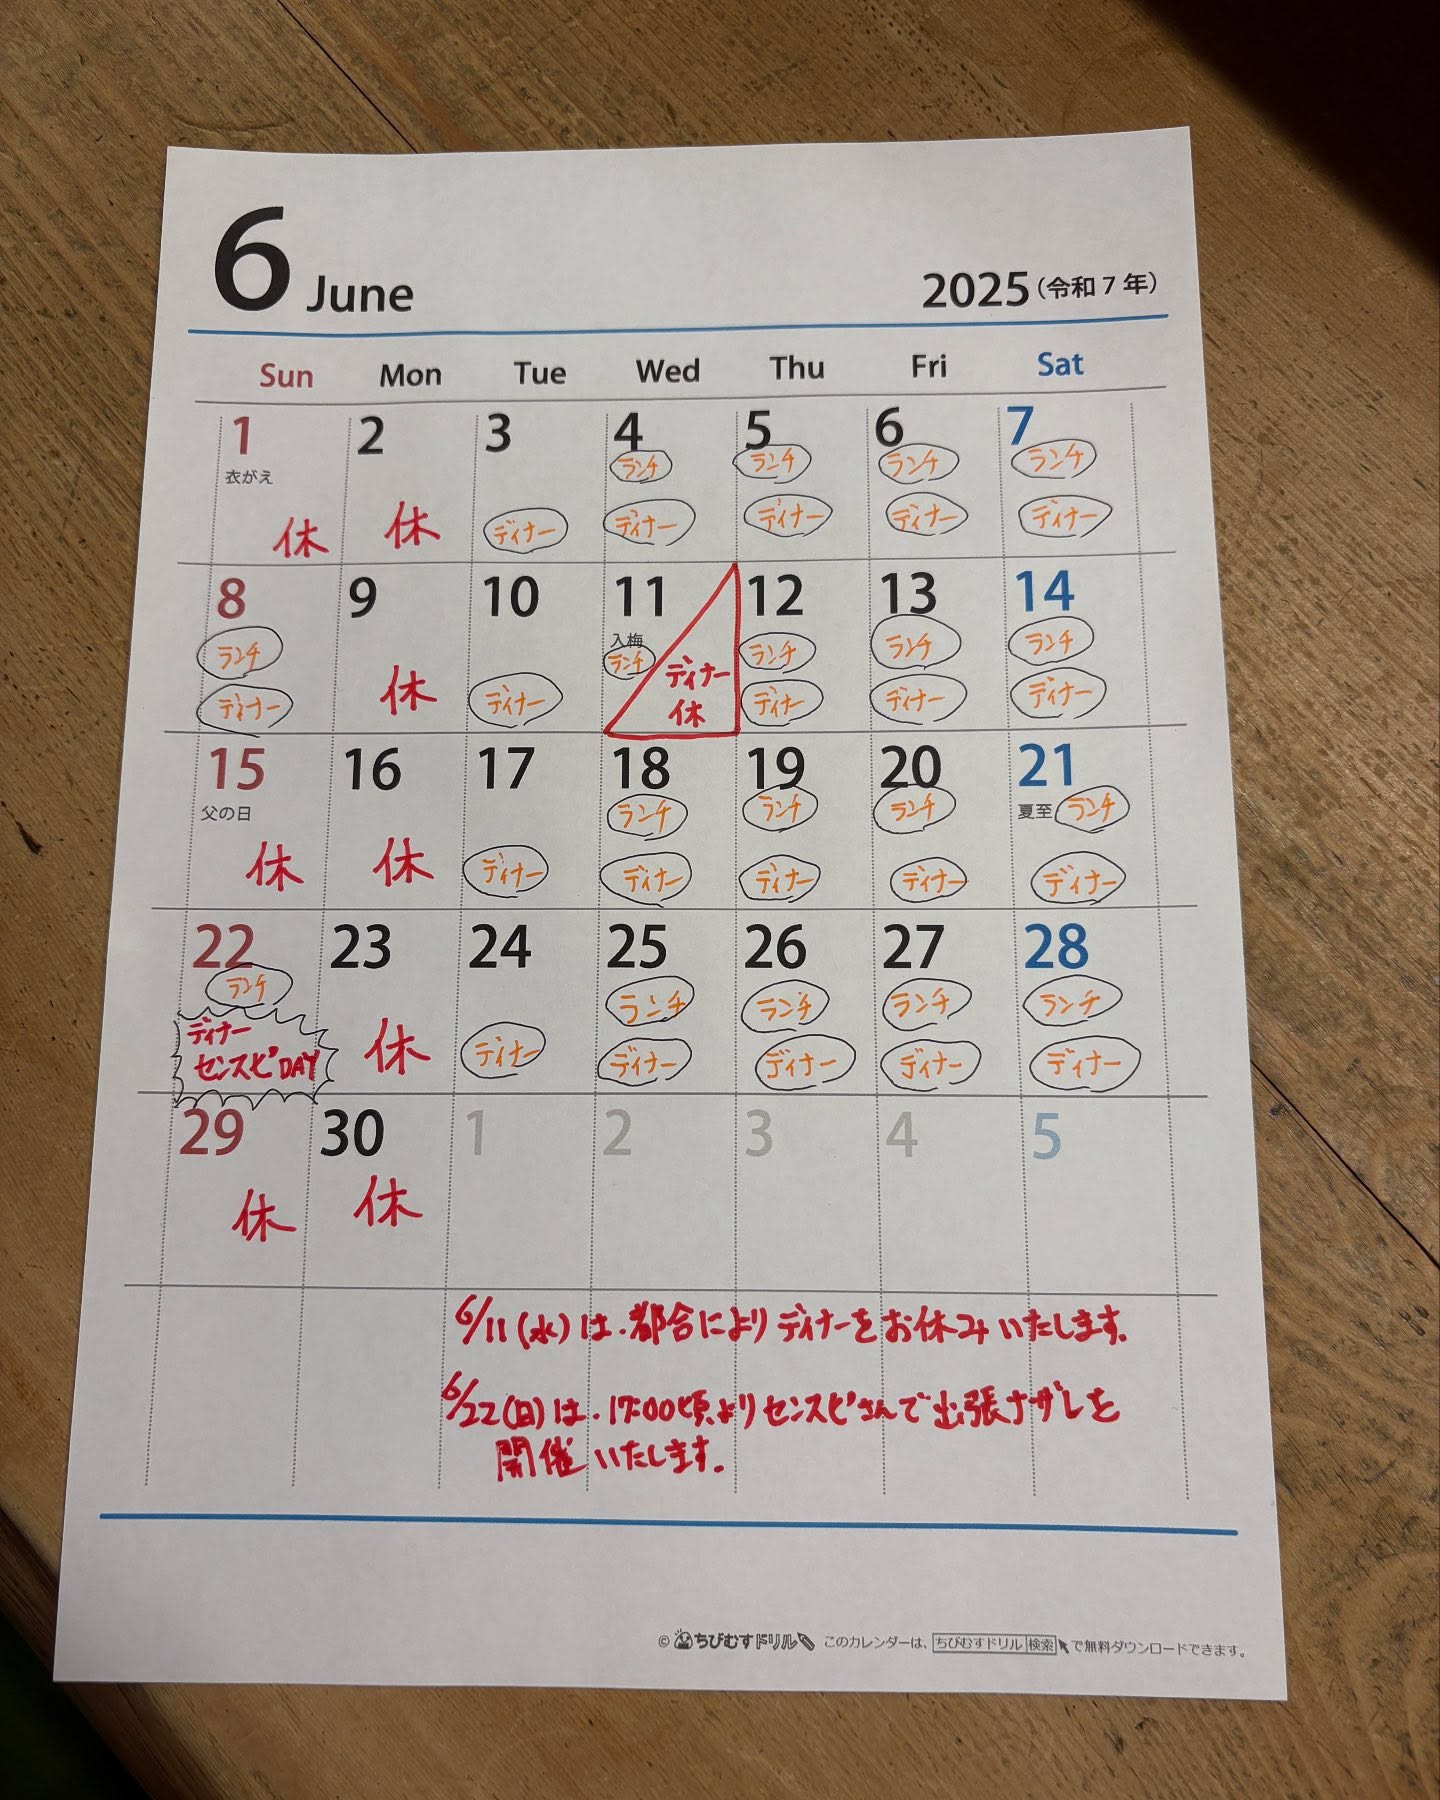 6 June
2025(令和7年)
Sun Mon Tue Wed Thu Fri Sat
1 2 3 4 5 6 7
衣がえ
ランチ ランチ ランチ ランチ
休 休 ディナー ディナー ディナー ディナー ディナー
8 9 10 11 12 13 14
入梅
ランチ ランチ ランチ ランチ ランチ
ディナー 休 ディナー ディナー休 ディナー ディナー ディナー
15 16 17 18 19 20 21
父の日 夏至
ランチ ランチ ランチ ランチ
休 休 ディナー ディナー ディナー ディナー ディナー
22 23 24 25 26 27 28
ランチ ランチ ランチ ランチ ランチ
ディナー
センスピDAY 休 ディナー ディナー ディナー ディナー ディナー
29 30 1 2 3 4 5
休 休
6/11(水)は.都合によりディナーをお休みいたします.
6/22(日)は.17:00頃よりセンスピさんで出張ナガレを
開催いたします.
© ちびむすドリル このカレンダーは、ちびむすドリル 検索 で無料ダウンロードできます。